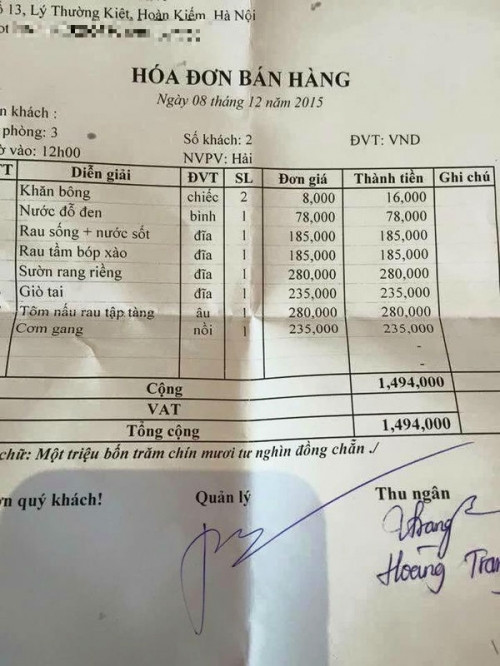 13, Lý Thường Kiệt, Hoàn Kiếm Hà Nội
HÓA ĐƠN BÁN HÀNG
Ngày 08 tháng 12 năm 2015
khách :
phòng: 3 Số khách: 2 ĐVT: VND
vào: 12h00 NVPV: Hải
Diễn giải ĐVT SL Đơn giá Thành tiền Ghi chú
Khăn bông chiếc 2 8,000 16,000
Nước đỗ đen bình 1 78,000 78,000
Rau sống + nước sốt đĩa 1 185,000 185,000
Rau tầm bóp xào đĩa 1 185,000 185,000
Sườn rang riềng đĩa 1 280,000 280,000
Giò tai đĩa 1 235,000 235,000
Tôm nấu rau tập tàng âu 1 280,000 280,000
Cơm gang nồi 1 235,000 235,000
-
-
Cộng 1,494,000
VAT
Tổng cộng 1,494,000
chữ: Một triệu bốn trăm chín mươi tư nghìn đồng chẵn ./
quý khách! Quản lý Thu ngân
Hoàng